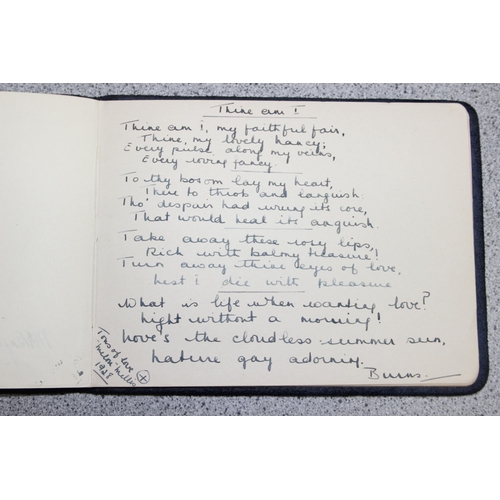 Thine am I
Thine am I, my faithful fair,
Thine, my lovely Nancy;
Every pulse along my veins,
Every roving fancy.
To thy bosom lay my heart,
There to throb and languish.
Tho' despair had wrung its core,
That would heal its anguish.
Take away these rosy lips,
Rich with balmy treasure!
Turn away thine eyes of love,
Lest I die with pleasure
What is life when wanting love?
Night without a morning!
Love's the cloudless summer sun,
Nature gay adorning.
Burns.
Tons of love
Miller
1928